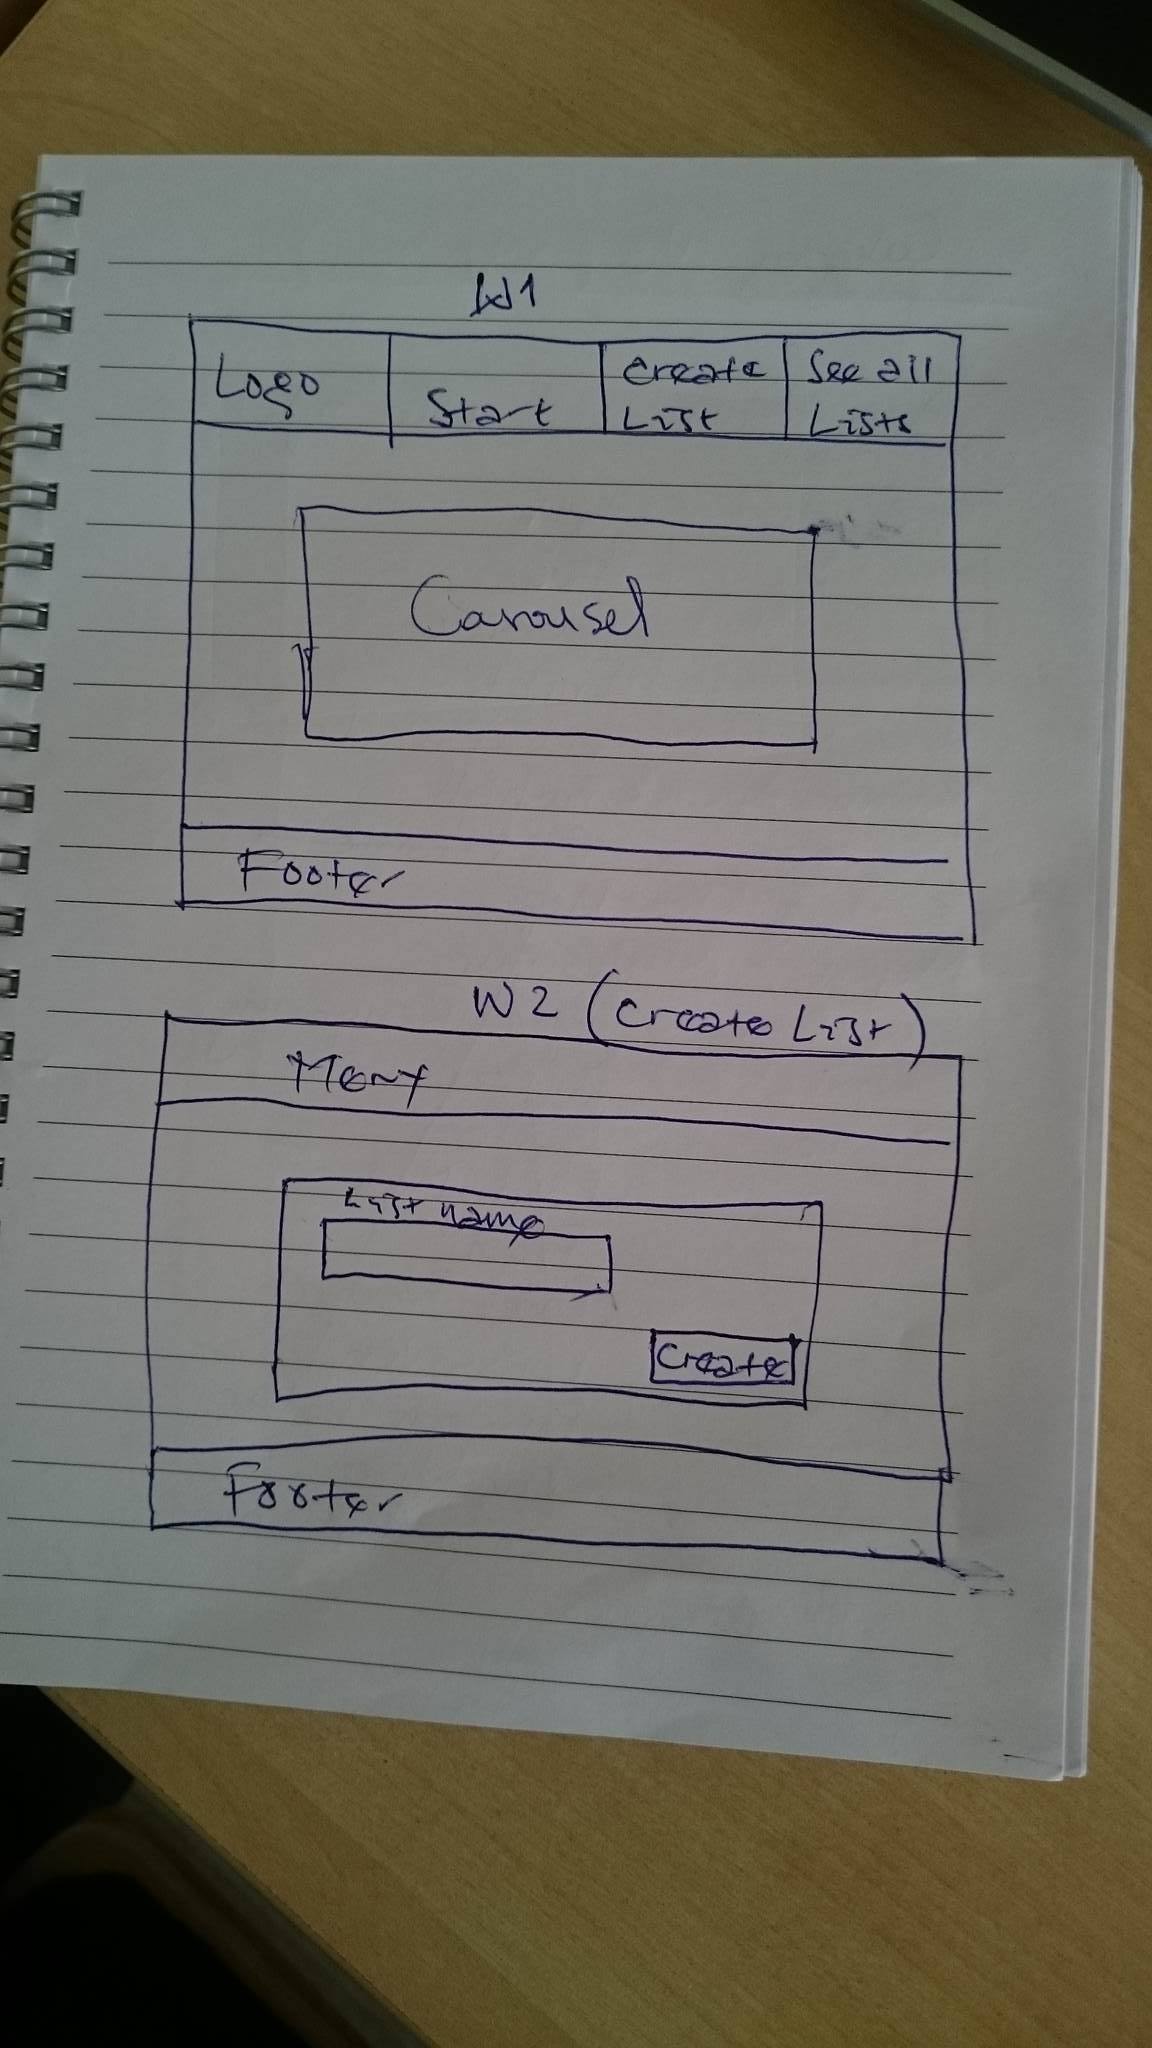 W1
Logo
Start
Create
List
See all
Lists
Carousel
Footer
W2 (Create List)
Meny
List name
Create
Footer